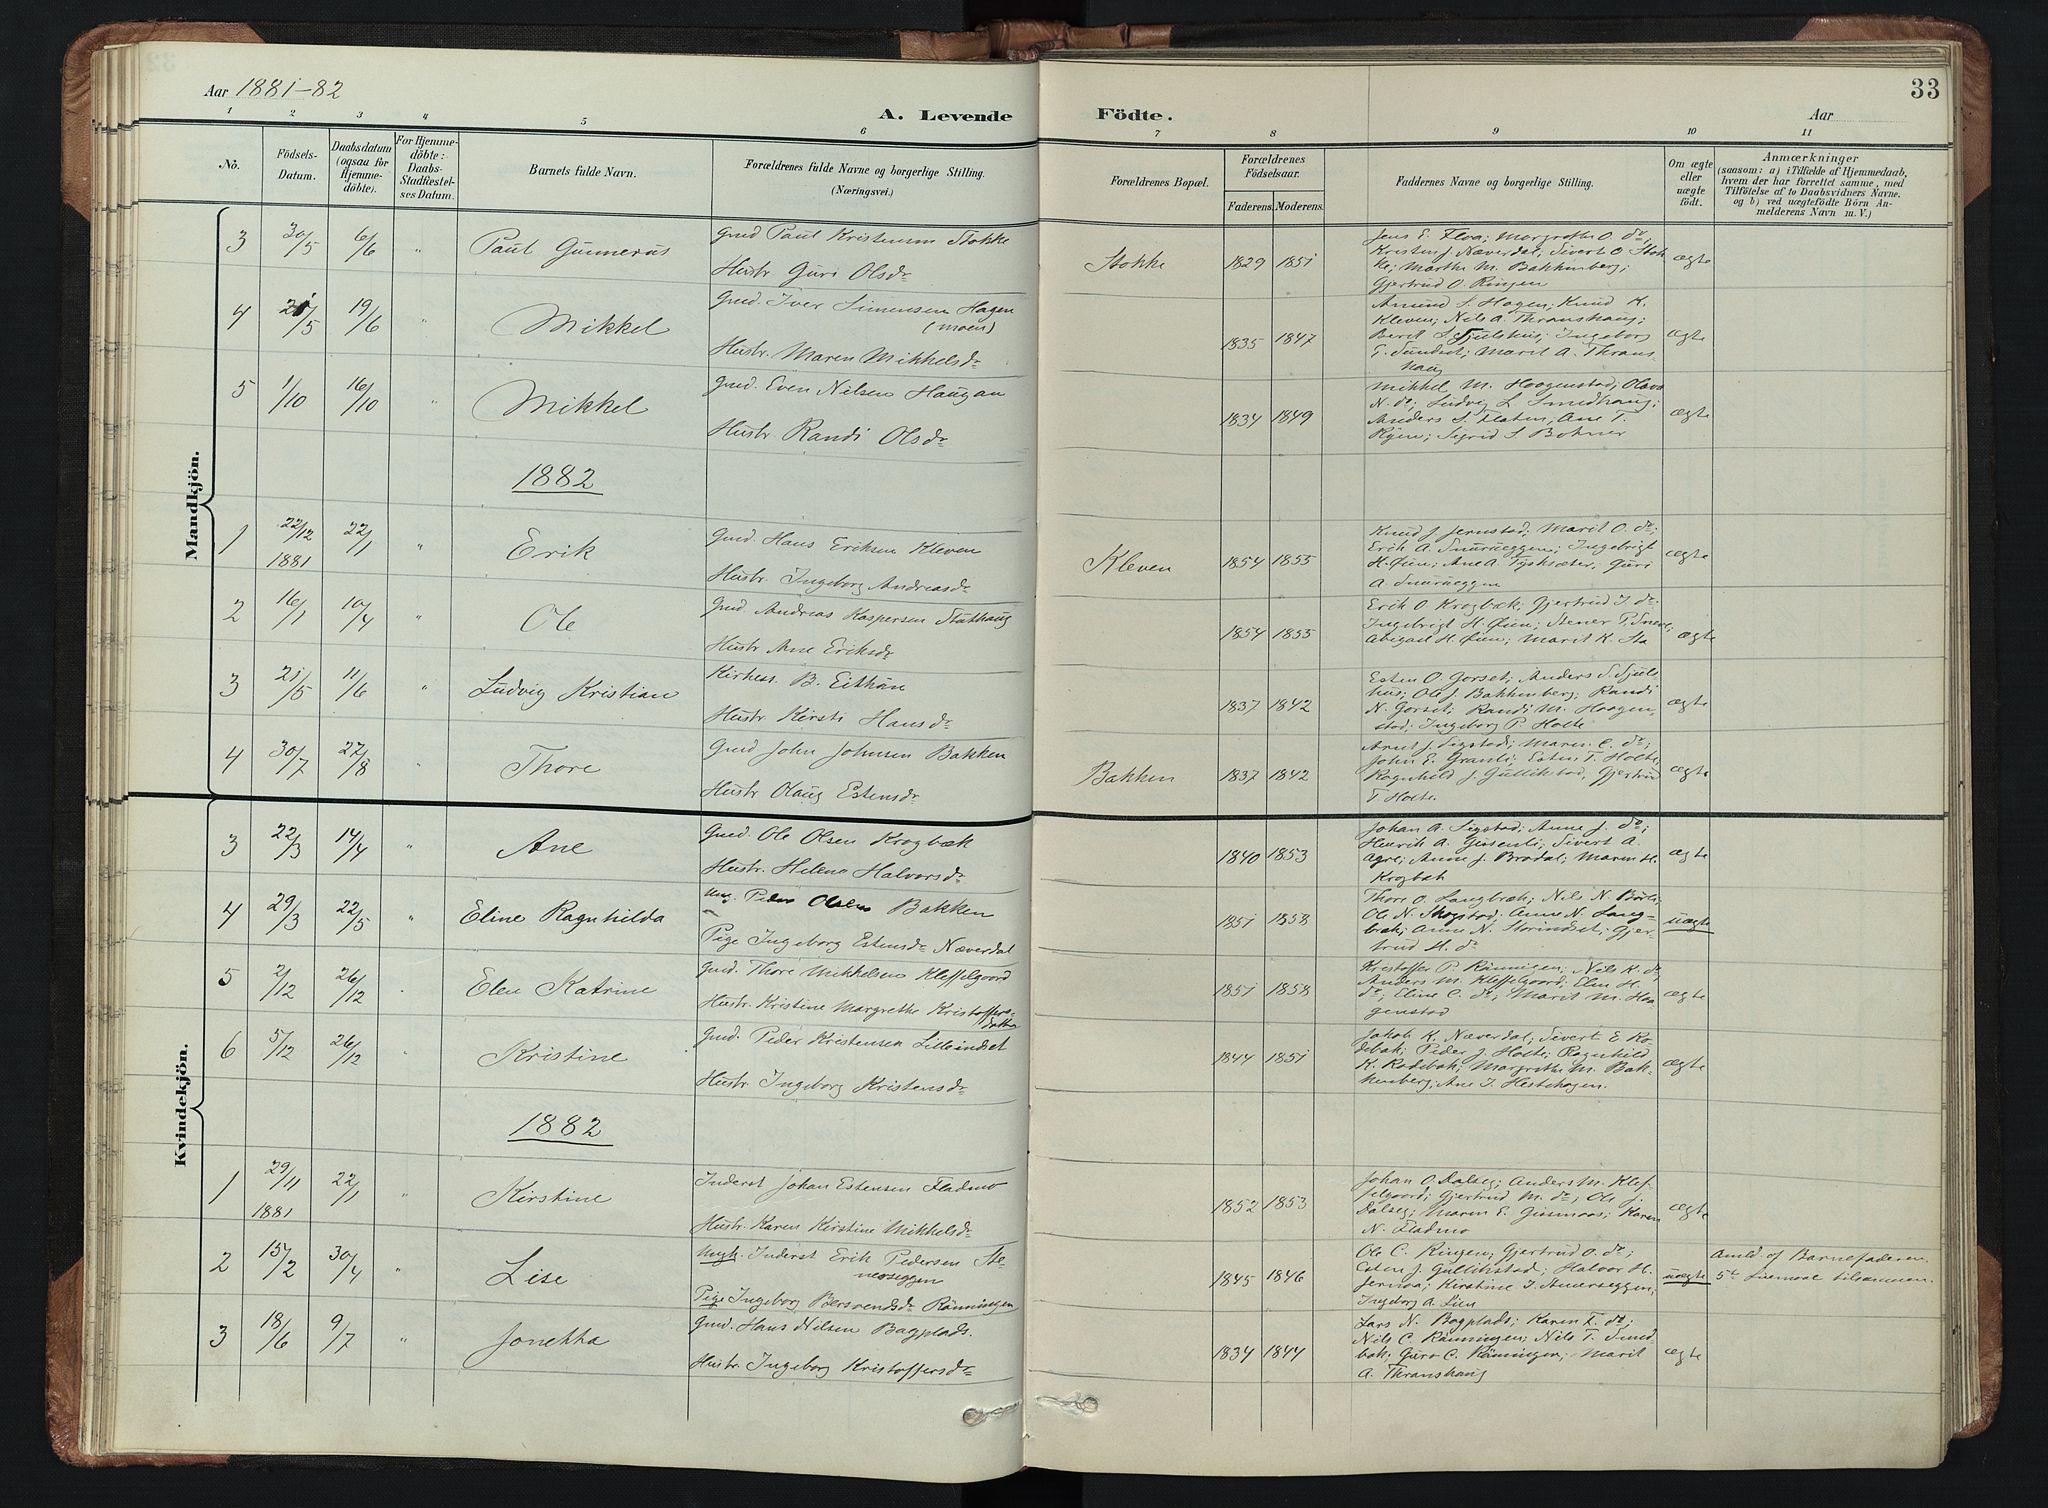 Aar 1881-82
A. Levende Födte.
Aar
33
1 2 3 4 5 6 7 8 9 10 11
No.
Födsels-Datum.
Daabsdatum (ogsaa for Hjemmedöbte).
For Hjemmedöbte: Daabs-Stadfæstelses Datum.
Barnets fulde Navn.
Forældrenes fulde Navne og borgerlige Stilling. (Næringsvei.)
Forældrenes Bopæl.
Forældrenes Födselsaar.
Faderens. Moderens.
Faddernes Navne og borgerlige Stilling.
Om ægte eller uægte födt.
Anmærkninger
(saasom: a) i Tilfælde af Hjemmedaab,
hvem der har forrettet samme, med
Tilföielse af to Daabsvidners Navne.
og b) ved uægtefödte Börn An-
melderens Navn m. V.)
Mandkjön.
3 30/5 6/6 " Paul Gunnerus Gmd Paul Kristensen Stokke
Hustr Guri Olsdr
Stokke 1829 1851
Jens E. Floa; Margrethe O. do;
Kristen J. Næverdal; Sivert O. Stok-
ke; Marthe M. Bakkenberg;
Gjertrud O. Ringen
ægte
4 21/5 19/6 " Mikkel Gmd. Iver Simensen Hagen
(moen)
Hustr. Maren Mikkelsdr
1835 1847
Amund S. Hagen; Knud K.
Kleven; Nils A. Thranshaug;
Berit S. Sjulshus; Ingeborg
G. Sundset; Marit A. Thrans-
haug
ægte
5 1/10 16/10 " Mikkel Gmd. Even Nilsen Haugan
Hustr. Randi Olsdr
1834 1849
Mikkel M. Haagenstad; Olava
N. do; Ludvig L. Smedhaug;
Anders S. Floten, Ane T.
Ryen; Sigrid S. Bohner
ægte
1882
1 22/12 1881 22/1 " Erik Gmd. Hans Eriksen Kleven
Hustr. Ingeborg Andreasdr
Kleven 1854 1855
Knud J. Jernstad; Marit O. do;
Erik A. Snurueggen; Ingebrigt
H. Øien; Ane A. Tysksæter; Guri
A. Snurueggen
ægte
2 16/1 10/4 " Ole Gmd. Andreas Kaspersen Stuthaug
Hustr Ane Eriksdr
1854 1855
Erik O. Krogbæk; Gjertrud J. do;
Ingebrigt H. Øien; Stener P.
Abigael H. Øien; Marit K.
ægte
3 21/5 11/6 " Ludvig Kristian Kirkess. B. Eithun
Hustr Kirsti Hansdr
1837 1842
Esten O. Gorset; Anders S. Sjuls-
hus; Ole J. Bakkenberg; Randi
N. Gorset; Randi M. Haagen-
stad; Ingeborg P. Holte
ægte
4 30/7 27/8 Thore Gmd John Johnsen Bakken
Hustr Olaug Estensdr
Bakken 1837 1842
Arnt J. Sigstad; Maren C. do;
John E. Granli; Esten T. Holte,
Ragnhild J. Gullikstad, Gjertrud
T. Holte.
ægte
Kvindekjön.
3 22/3 14/4 " Ane Gmd. Ole Olsen Krogbæk
Hustr. Helene Halvorsdr
1840 1853
Johan A. Sigstad; Anne J. do;
Henrik A. Gissenli; Sivert A.
Agre; Anne J. Brodal; Maren H.
Krogbæk
ægte
4 29/3 22/5 " Eline Ragnhilda Ung. Peder Olsen Bakken
Pige Ingeborg Estensdr Næverdal
1851 1858
Thore O. Langbræk; Nils N. Børli;
Ole N. Skogstad; Anne N. Lang-
bræk; Anne N. Storindset; Gjer-
trud H. do
uægte
5 2/12 26/12 Elen Katrine Gmd. Thore Mikkelsen Kleffelgaard
Hustr. Kristine Margrethe Kristoffers-
datter
1851 1858
Kristoffer P. Rönningen; Nils K. do,
Anders M. Kleffelgaard; Elen H.
do; Eline C. do; Marit M. Haa-
genstad
ægte
6 5/12 26/12 Kristine Gmd. Peder Kristensen Lilleindset
Hustr Ingeborg Kristensdr
1844 1851
Jakob K. Næverdal; Sivert E. Ro-
debak; Peder J. Holte; Ragnhild
K. Rodebak; Margrethe M. Bak-
kenberg; Ane J. Hestehagen.
ægte
1882
1 29/11 1881 22/1 " Kirstine Inderst Johan Estensen Fladmo
Hustr. Karen Kirstine Mikkelsdr
1852 1853
Johan O. Dalseg; Anders M. Klef-
felgaard; Gjertrud M. do; Ole J.
Dalseg; Maren E. Gismoos; Karen
N. Fladmo
ægte
2 15/2 30/4 " Lise Ungk. Inderst Erik Pedersen Ste-
nerseggen
Pige Ingeborg Bersvendsdr Rönningen
1845 1846
Ole C. Ringen; Gjertrud O. do;
Esten J. Gullikstad; Halvor H.
Jermoa; Kirstine J. Stenerseggen;
Ingeborg A. Lien
uægte
Anmld. af Barnefaderen
5te Leiermaal tilsammen.
3 18/6 9/7 " Jonetta Gmd. Hans Nilsen Bagplads.
Hustr. Ingeborg Kristoffersdr
1834 1844
Lars N. Bagplads; Karen T. do;
Nils C. Rönningen; Nils T. Smed-
bak; Guro C. Rönningen; Marit
A. Thranshaug
ægte